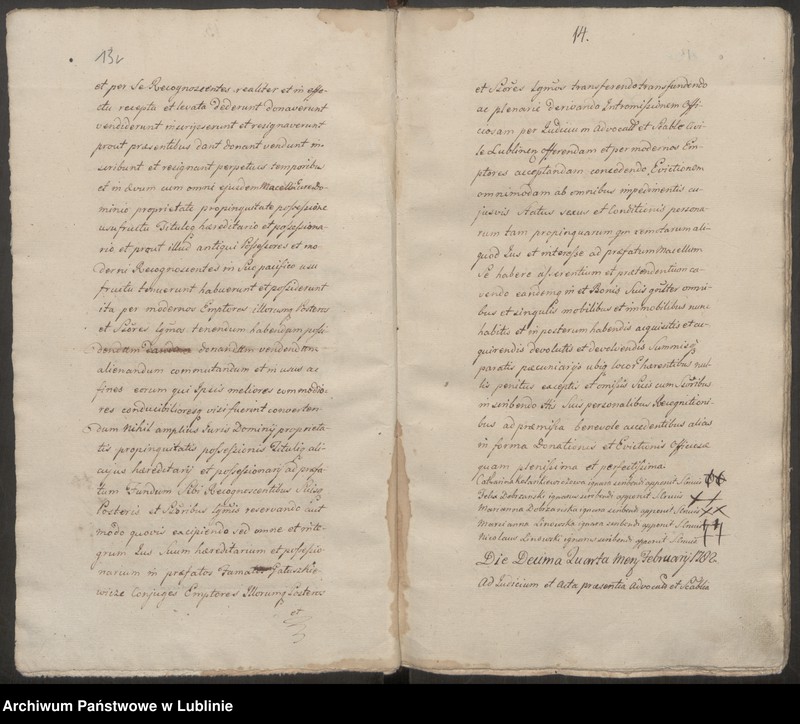 13v
et per Se Recognoscentes realiter et in effe-
ctu recepta et levata dederunt donaverunt
vendiderunt inscripserunt et resignaverunt
prout præsentibus dant donant vendunt in-
scribunt et resignant perpetuis temporibus
et in ævum cum omni ejusdem Macelli Jure Do-
minio proprietate propinquitate possessione
usufructu Titulog hæreditario et possessiona-
rio et prout illud antiqui Possessores et mo-
derni Recognoscentes in Suo pacifico usu
fructu tenuerunt habuerunt et possiderunt
ita per modernos Emptores illorumg Posteros
et Sšores Lgmos tenendum habendum possi-
dendum donandum vendendum
alienandum commutandum et in usus ac
fines eorum qui Ipsis meliores commodio-
res conducibilioresg visi fuerint converten-
dum Nihil amplius Juris Dominij proprieta-
tis propinquitatis possessionis Titulig ali-
cujus hæreditarij et possessionarij ad præfa-
tum Fundum Sibi Recognoscentibus Suisg
Posteris et Sšoribus Lgmis reservando aut
modo quovis excipiendo sed omne et inte-
grum Jus Suum hæreditarium et possessio-
narium in præfatos Famatos
Conjuges Emptores Illorumg Posteros
et
14.
et Sšores Lgmos transferendo transfundendo
ac plenarie derivando Intromissionem Offi-
ciosam per Judicium Advocatt et Scable Civi-
le Lublinen offerendam et per modernos Em-
ptores acceptandam concedendo Evictionem
omnimodam ab omnibus impedimentis cu-
jusvis Status sexus et Conditionis persona-
rum tam propinquarum qm remotarum ali-
quod Jus et interesse ad præfatum Macellum
Se habere asserentium et prætendentium ca-
vendo eandemg in et Bonis Suis gnliter omni-
bus et singulis mobilibus et immobilibus nunc
habitis et in posterum habendis acquisitis et ac-
quirendis devolutis et devolvendis Summisg
paratis pecuniarijs ubig locor hærentibus nul-
lis penitus exceptis et omissis Suis cum Sšoribus
inscribendo His Suis personalibus Recognitioni-
bus ad præmissa benevole accedentibus alias
in forma Donationis et Evictionis Officiosa
quam plenissima et perfectissima.
Catharina ignara scribendi apponit Signis ++
Josephus Dobrzanski ignarus scribendi apponit Signis ++
Marianna Dobrzanska ignara scribendi apponit Signis ××
Marcianna Linewska ignara scribendi apponit Signis ++
Nicolaus Linewski ignarus scribendi apponit Signis ++
Die Decima Quarta Mens Februarij 1792
Ad Judicium et Acta præsentia Advocatt et Scabla
Archiwum Państwowe w Lublinie